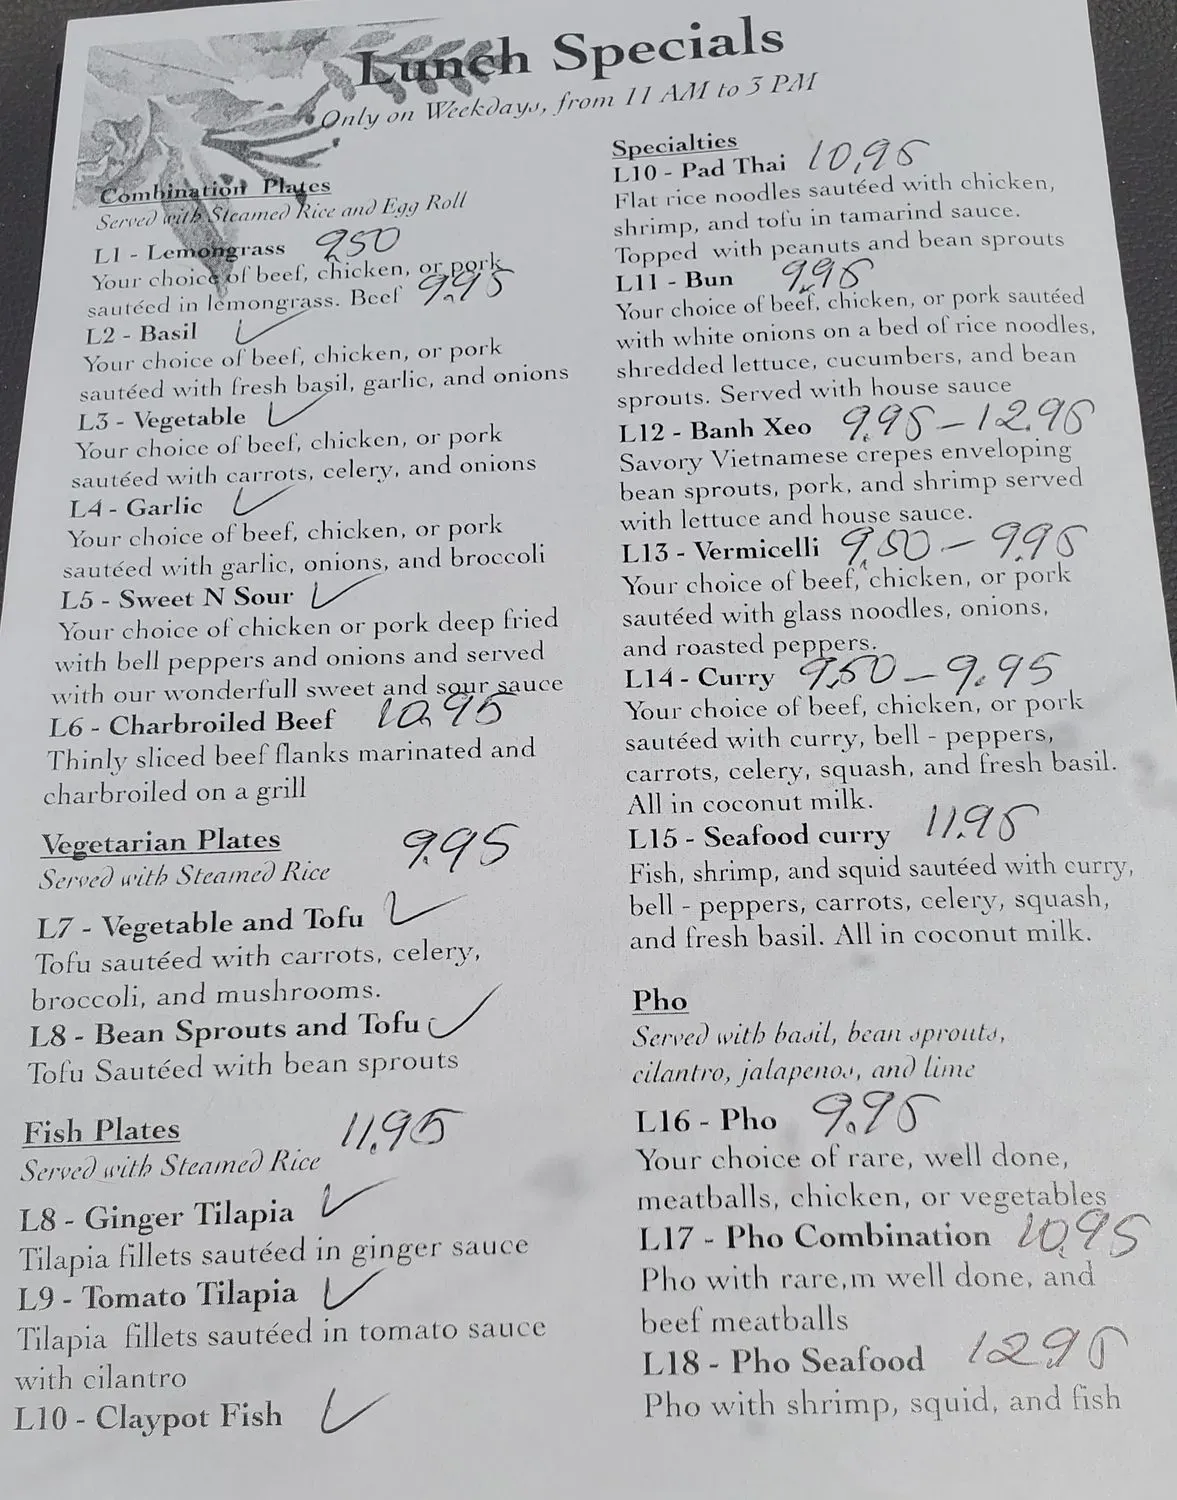 Lunch Specials
Only on Weekdays, from 11 AM to 3 PM
Combination Plates
Served with Steamed Rice and Egg Roll
L1 - Lemongrass 9.50
Your choice of beef, chicken, or pork
sautéed in lemongrass. Beef 9.95
L2 - Basil ✓
Your choice of beef, chicken, or pork
sautéed with fresh basil, garlic, and onions
L3 - Vegetable ✓
Your choice of beef, chicken, or pork
sautéed with carrots, celery, and onions
L4 - Garlic ✓
Your choice of beef, chicken, or pork
sautéed with garlic, onions, and broccoli
L5 - Sweet N Sour ✓
Your choice of chicken or pork deep fried
with bell peppers and onions and served
with our wonderfull sweet and sour sauce
L6 - Charbroiled Beef 10.95
Thinly sliced beef flanks marinated and
charbroiled on a grill
Vegetarian Plates 9.95
Served with Steamed Rice
L7 - Vegetable and Tofu ✓
Tofu sautéed with carrots, celery,
broccoli, and mushrooms.
L8 - Bean Sprouts and Tofu ✓
Tofu Sautéed with bean sprouts
Fish Plates 11.95
Served with Steamed Rice
L8 - Ginger Tilapia ✓
Tilapia fillets sautéed in ginger sauce
L9 - Tomato Tilapia ✓
Tilapia fillets sautéed in tomato sauce
with cilantro
L10 - Claypot Fish ✓
Specialties
L10 - Pad Thai 10.95
Flat rice noodles sautéed with chicken,
shrimp, and tofu in tamarind sauce.
Topped with peanuts and bean sprouts
L11 - Bun 9.95
Your choice of beef, chicken, or pork sautéed
with white onions on a bed of rice noodles,
shredded lettuce, cucumbers, and bean
sprouts. Served with house sauce
L12 - Banh Xeo 9.95 - 12.95
Savory Vietnamese crepes enveloping
bean sprouts, pork, and shrimp served
with lettuce and house sauce.
L13 - Vermicelli 9.50 - 9.95
Your choice of beef, chicken, or pork
sautéed with glass noodles, onions,
and roasted peppers.
L14 - Curry 9.50 - 9.95
Your choice of beef, chicken, or pork
sautéed with curry, bell - peppers,
carrots, celery, squash, and fresh basil.
All in coconut milk.
L15 - Seafood curry 11.95
Fish, shrimp, and squid sautéed with curry,
bell - peppers, carrots, celery, squash,
and fresh basil. All in coconut milk.
Pho
Served with basil, bean sprouts,
cilantro, jalapenos, and lime
L16 - Pho 9.95
Your choice of rare, well done,
meatballs, chicken, or vegetables
L17 - Pho Combination 10.95
Pho with rare,m well done, and
beef meatballs
L18 - Pho Seafood 12.95
Pho with shrimp, squid, and fish